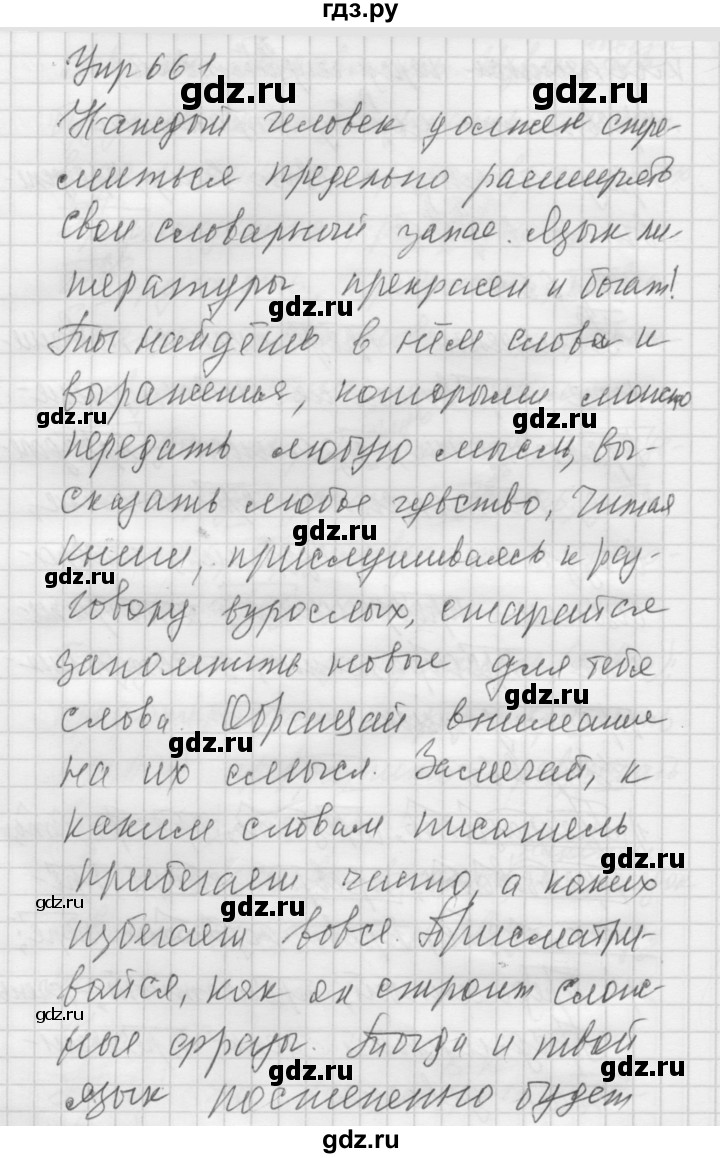 гдз.ру
Упр 661
gdz.ru gdz.ru
Каждый человек должен стре-
миться предельно расширять
gdz.ru
свой словарный запас. Язык ли-
тературы прекрасен и богат!
gdz.ru
Ты найдёшь в нём слова и
выражения, которыми можно
gdz.ru gdz.ru
передать любую мысль, вы-
сказать любое чувство, Читая
gdz.ru
книги, прислушиваясь к раз-
gdz.ru
говору взрослых, старайся
запомнить новые для тебя
gdz.ru
слова. Обращай внимание
gdz.ru
на их смысл. Замечай, к
каким словам писатель
gdz.ru
прибегает часто, а каких
gdz.ru gdz.ru
избегает вовсе. Присматри-
вайся, как он строит слож-
gdz.ru
ные фразы. Тогда и твой
gdz.ru
язык постепенно будет
gdz.ru